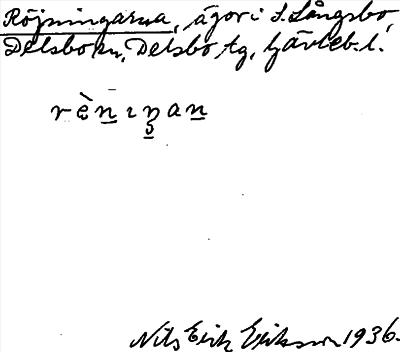 Röjningarna, ägor i S. Långsbo,
Delsbo sn, Delsbo tg, Gävleb. l.
rènıŋan
Nils Erik Eriksson 1936.